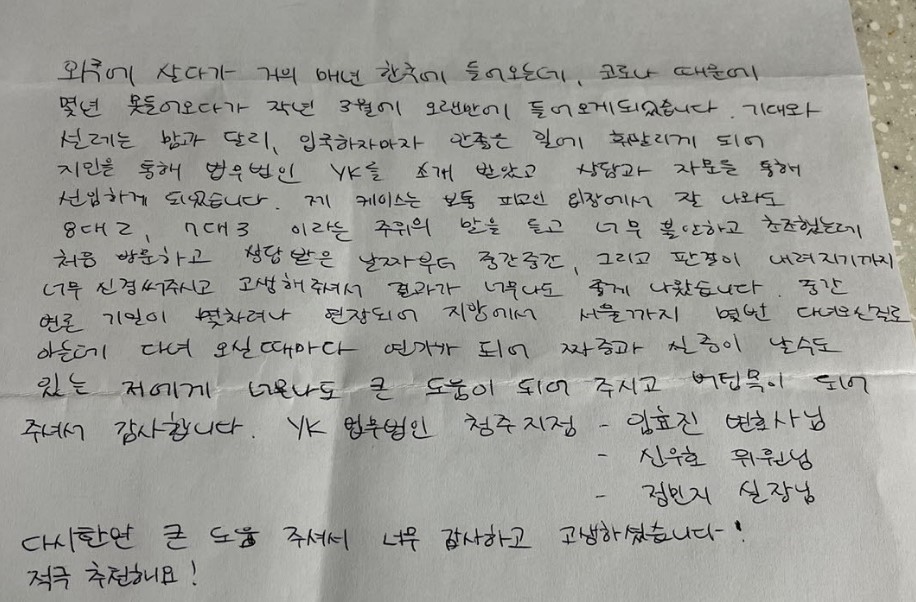 외국에 살다가 거의 매년 한국에 들어오는데, 코로나 때문에
몇년 못들어오다가 작년 3월에 오랜만에 들어오게되었습니다. 기대와
설레는 맘과 달리, 입국하자마자 안좋은 일에 휘말리게 되어
지인을 통해 법무법인 YK를 소개 받았고 상담과 자문을 통해
선임하게 되었습니다. 제 케이스는 보통 피고인 입장에서 잘 나와도
8대2, 7대3 이라는 주위의 말을 듣고 너무 불안하고 초조했는데
처음 방문하고 상담받은 날짜부터 중간중간, 그리고 판결이 내려지기까지
너무 신경써주시고 고생해주셔서 결과가 너무나도 좋게 나왔습니다. 중간
변론 기일이 몇차례나 연장되어 지방에서 서울까지 몇번 다녀오신적로
아는데 다녀 오실때마다 연기가 되어 짜증과 실증이 날수도
있는 저에게 너무나도 큰 도움이 되어 주시고 버팀목이 되어
주셔서 감사합니다. YK 법무법인 청주지점 - 임효진 변호사님
- 신우호 위원님
- 정민지 실장님
다시한번 큰 도움 주셔서 너무 감사하고 고생하셨습니다!
적극 추천해요!